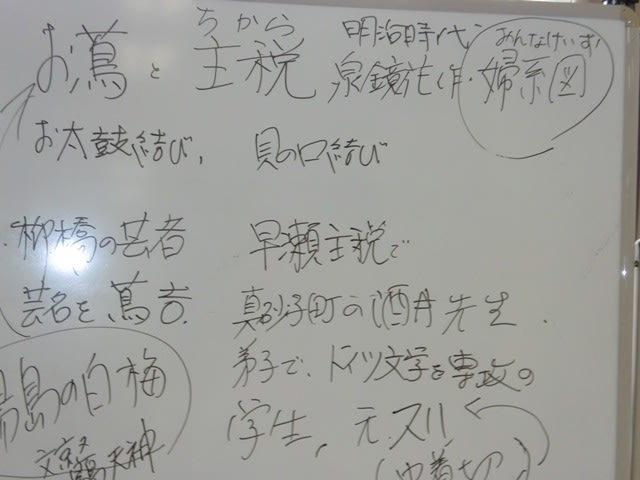 ちから 明治時代 おんなけいず
お蔦と主税 泉鏡花作・婦系図
お太鼓結び、 貝の口結び
柳橋の芸者 早瀬主税で
芸名を蔦吉. 真砂町の酒井先生.
湯島の白梅 弟子で、ドイツ文学を専攻の
天神 学生, 元.スリ
(巾着切)